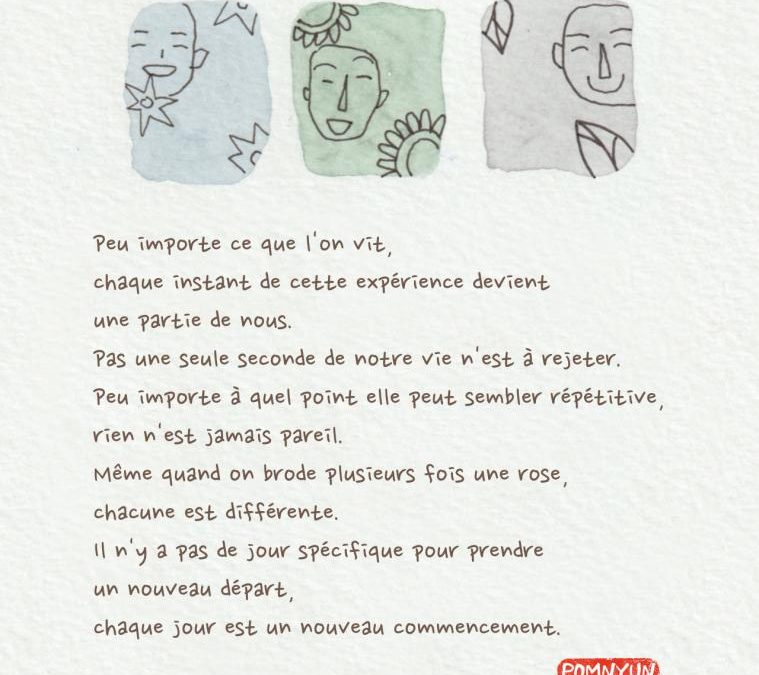 Peu importe ce que l'on vit,
chaque instant de cette expérience devient
une partie de nous.
Pas une seule seconde de notre vie n'est à rejeter.
Peu importe à quel point elle peut sembler répétitive,
rien n'est jamais pareil.
Même quand on brode plusieurs fois une rose,
chacune est différente.
Il n'y a pas de jour spécifique pour prendre
un nouveau départ,
chaque jour est un nouveau commencement.
POMNYUN